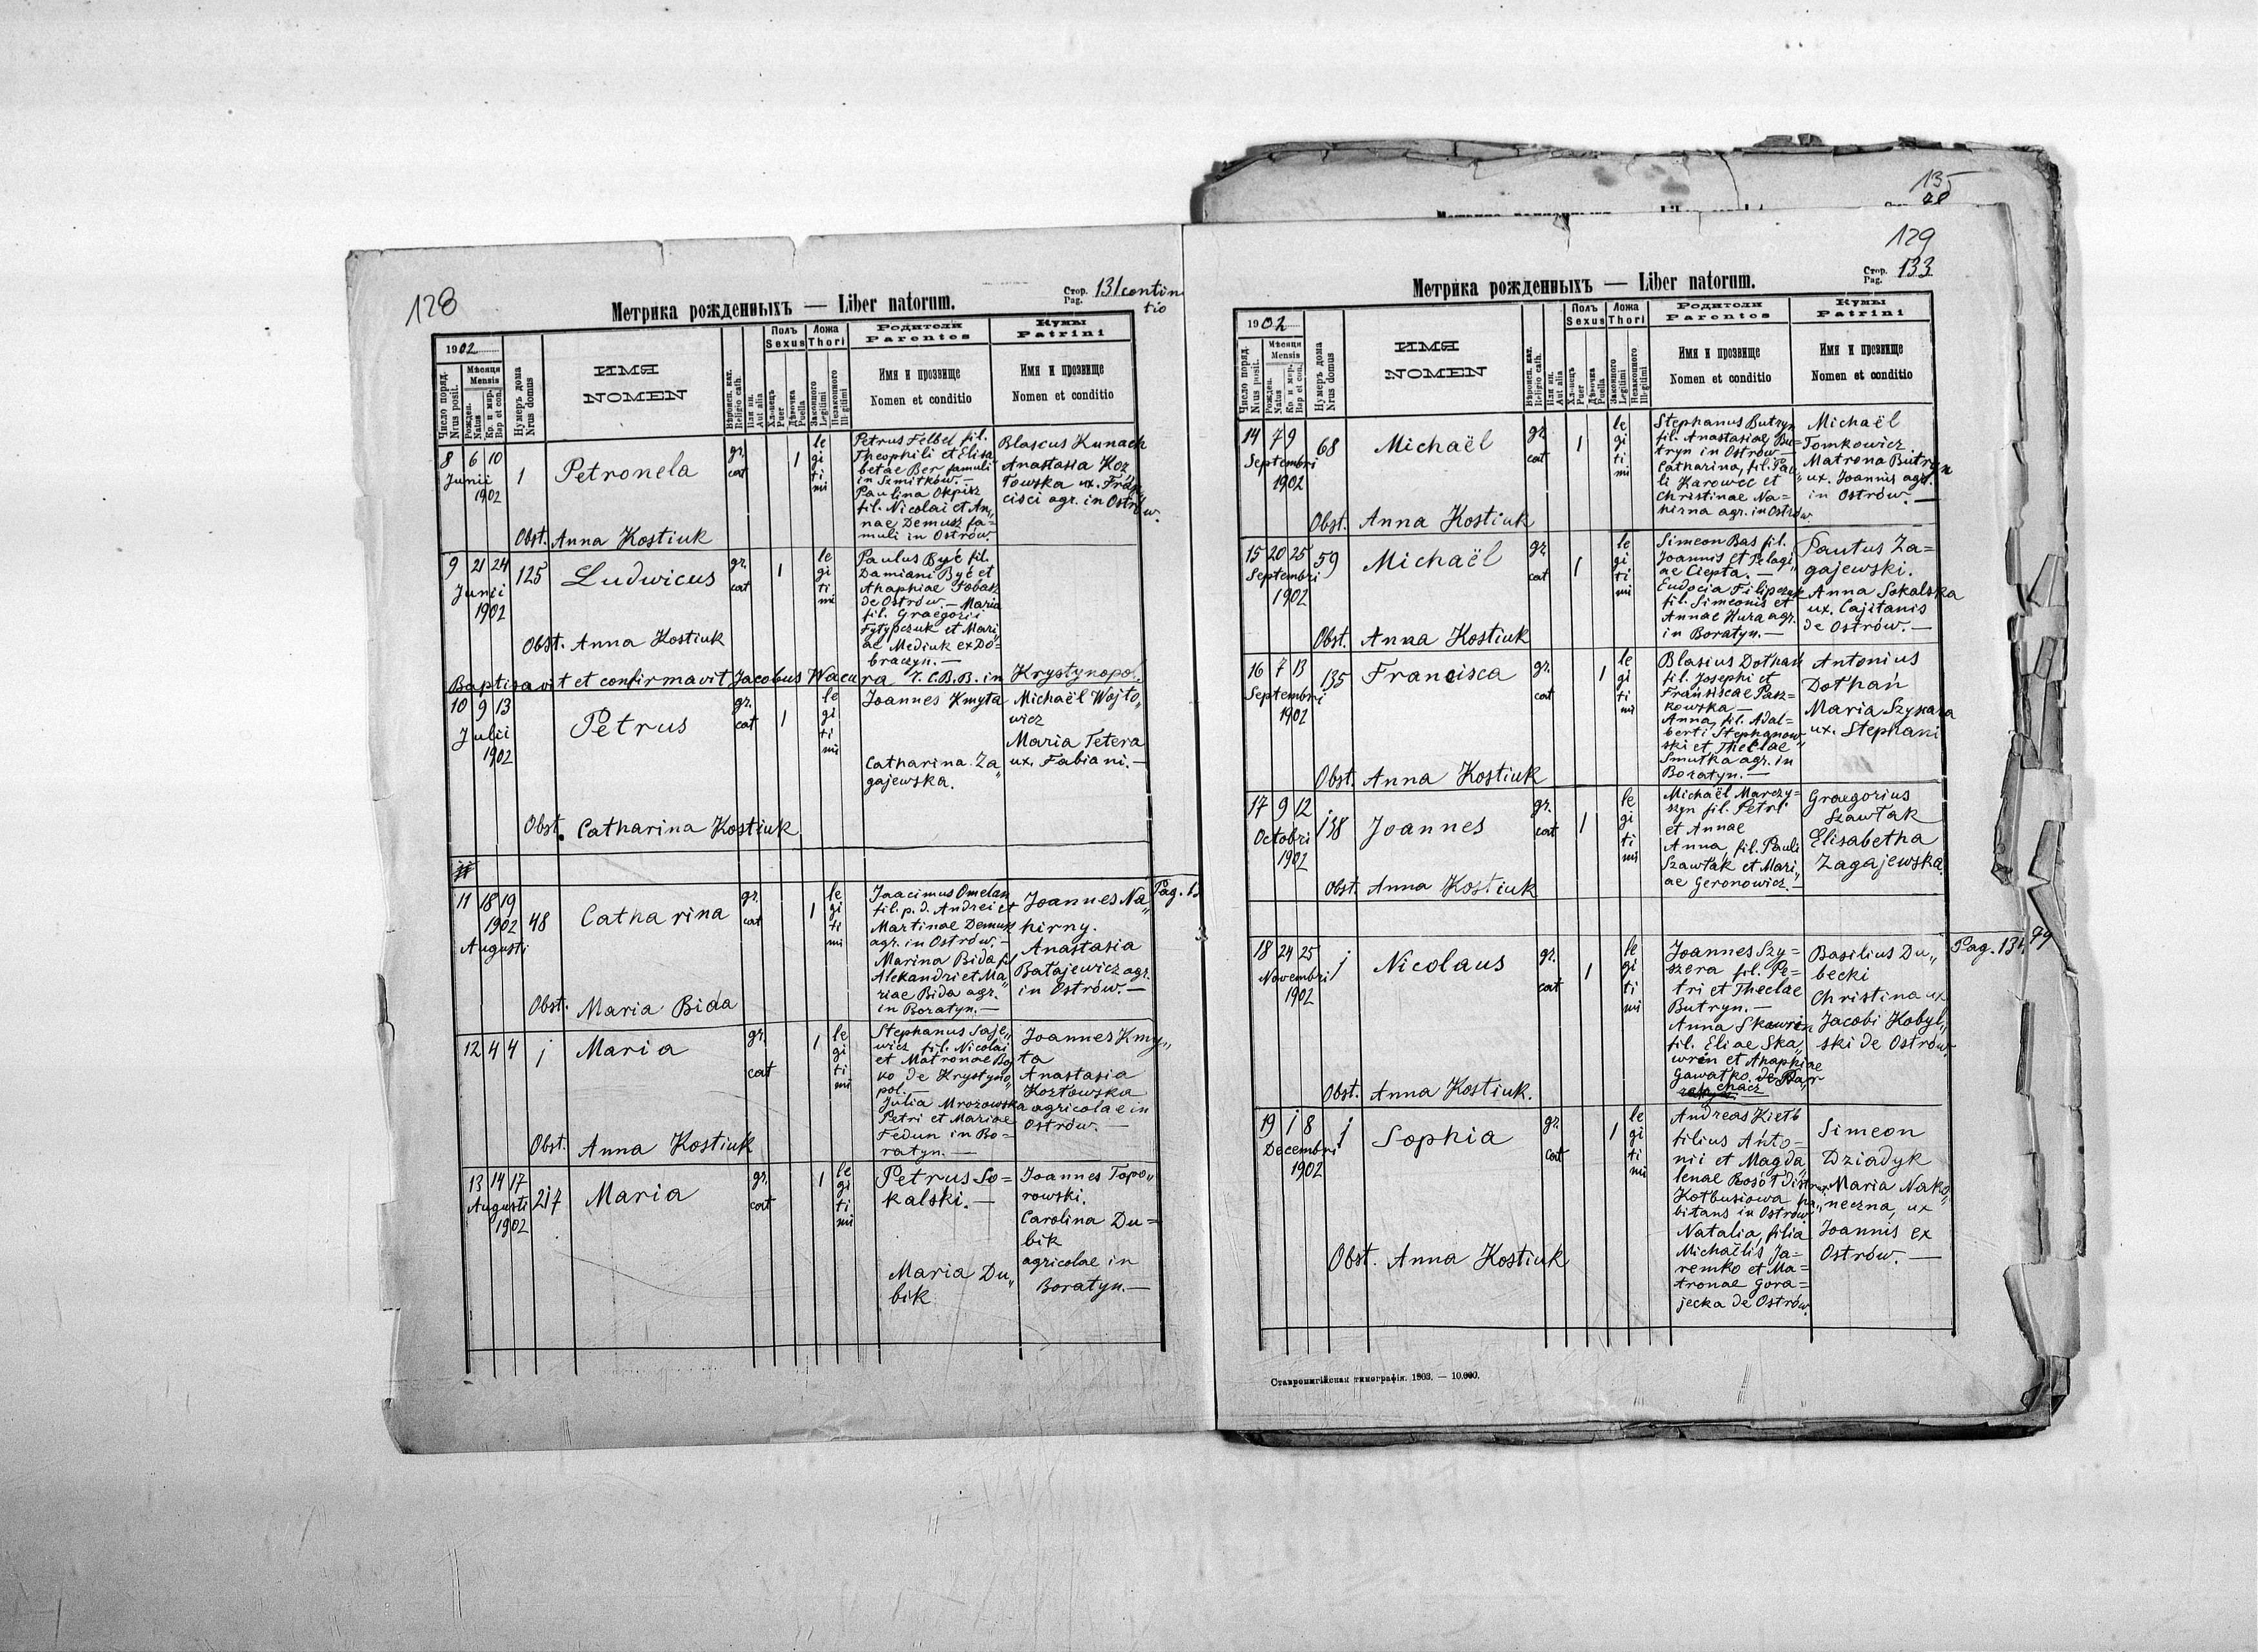 128
Метрика рожденныхъ — Liber natorum.
Стор. Pag. 131 contin
tio
1902
Число поряд. Nrus posit.
Мѣсяця Mensis
Рожден. Natus
Кр. и мѵр. Bap et con.
Нумеръ дома Nrus domus
ИМЯ
NOMEN
Вѣроисп. кат. Religio cath.
Или ин. Aut alia
Полъ Sexus
Хлопецъ Puer
Дѣвочка Puella
Ложа Thori
Законного Legitimi
Незаконного Illegitimi
Родители
Parentes
Имя и прозвище
Nomen et conditio
Кумы
Patrini
Имя и прозвище
Nomen et conditio
8 6 10
Junii
1902
1
Petronela
gr.
cat
1
le
gi
ti
mi
Petrus Felbel fil.
Theophili et Elisa
betae Ber famuli
in Szmitków. —
Paulina Okpisz
fil. Nicolai et An„
nae Demusz fa=
muli in Ostrów. —
Blascus Kunach
Anastasia Koz
łowska ux. Fran„
cisci agr. in Ostrów.
Obst. Anna Kostiuk
9 21 24
Junii
1902
125
Ludwicus
gr.
cat
1
le
gi
ti
mi
Paulus Być fil.
Damiani Być et
Ahaphiae
de Ostrów. — Maria
fil. Graegorii
Fytypczuk et Mari„
ae Mediuk ex Do=
braczyn. —
Obst. Anna Kostiuk
Baptisavit et confirmavit Jacobus Wacura r. C.B.B. in Krystynopol.
10 9 13
Julii
1902
Petrus
gr.
cat
1
le
gi
ti
mi
Joannes Kmyta
Catharina Za„
gajewska.
Michaël Wojto„
wicz
Maria Tetera
ux. Fabiani. —
Obst. Catharina Kostiuk
11
11 18 19
1902
Augusti
48
Catharina
gr.
cat
1
le
gi
ti
mi
Joacimus Omelan
fil. p. d. Andrei et
Martinae Demusz
agr. in Ostrów. —
Marina Bida fil
Alekandri et Ma„
riae Bida agr.
in Boratyn. —
Joannes Na„
hirny.
Anastasia
Batajewicz agr.
in Ostrów. —
Pag. 13
Obst. Maria Bida
12 4 4
1
Maria
gr.
cat
1
le
gi
ti
mi
Stephanus Saje„
wicz fil. Nicolai
et Matronae Boj
ko de Krystyno„
pol. —
Julia Mrozowska
Petri et Mariae
Fedun in Bo=
ratyn. —
Joannes Kmy„
ta
Anastasia
Kozłowska
agricolae in
Ostrów. —
Obst. Anna Kostiuk
13 14 17
Augusti
1902
217
Maria
gr.
cat
1
le
gi
ti
mi
Petrus So=
kalski. —
Maria Du„
bik
Joannes Topo„
rowski.
Carolina Du=
bik
agricolae in
Boratyn. —
135
129
Метрика рожденныхъ — Liber natorum.
Стор. Pag. 133
1902
Число поряд. Nrus posit.
Мѣсяця Mensis
Рожден. Natus
Кр. и мѵр. Bap et con.
Нумеръ дома Nrus domus
ИМЯ
NOMEN
Вѣроисп. кат. Religio cath.
Или ин. Aut alia
Полъ Sexus
Хлопецъ Puer
Дѣвочка Puella
Ложа Thori
Законного Legitimi
Незаконного Illegitimi
Родители
Parentes
Имя и прозвище
Nomen et conditio
Кумы
Patrini
Имя и прозвище
Nomen et conditio
14 7 9
Septembri
1902
68
Michaël
gr.
cat
1
le
gi
ti
mi
Stephanus Butryn
fil. Anastasiae Bu=
tryn in Ostrów —
Catharina, fil. Pau„
li Karowec et
Christinae Na=
hirna agr. in Ostrów
Michaël
Tomkowicz
Matrona Butryn
ux. Joannis agr.
in Ostrów. —
Obst. Anna Kostiuk
15 20 25
Septembri
1902
59
Michaël
gr.
cat
1
le
gi
ti
mi
Simeon Bas fil.
Joannis et Pelagi„
ae Ciepta. —
Eudocia Filipczuk
fil. Simeonis et
Annae Kura agr.
in Boratyn. —
Pautus Za=
gajewski.
Anna Sokalska
ux. Cajitanis
de Ostrów. —
Obst. Anna Kostiuk
16 7 13
Septembri
1902
135
Francisca
gr.
cat
1
le
gi
ti
mi
Blasius Dothań
fil. Josephi et
Franciscae Pasz=
kowska —
Anna, fil. Adal=
berti Stephanow„
ski et Theclae
Smutka agr. in
Boratyn. —
Antonius
Dothań
Maria Szykara
ux. Stephani
Obst. Anna Kostiuk
17 9 12
Octobri
1902
138
Joannes
gr.
cat
1
le
gi
ti
mi
Michaël Marczy=
szyn fil. Petri
et Annae
Anna, fil. Pauli
Szawłak et Mari„
ae Geronowicz. —
Graegorius
Szawłak
Elisabetha
Zagajewska
Obst. Anna Kostiuk
18 24 25
Novembri
1902
1
Nicolaus
gr.
cat
1
le
gi
ti
mi
Joannes Szy=
szera fil. Pe=
tri et Theclae
Butryn. —
Anna Skawrin
fil. Eliae Ska„
wren et Ahaphiae
Gawatko de Par
chacz
Basilius Du„
becki
Christina ux
Jacobi Kobyl„
ski de Ostrów.
Pag. 131, 99
Obst. Anna Kostiuk.
19 1 8
Decembri
1902
1
Sophia
gr.
cat
1
le
gi
ti
mi
Andreas Kiełb
filius Anto=
nii et Magda„
lenae Rosół distr.
Kotbusiowa ha„
bitans in Ostrów
Natalia, filia
Michaëlis Ja=
remko et Ma=
tronae Gora=
jecka de Ostrów.
Simeon
Dziadyk
Maria Nako„
neczna, ux
Joannis ex
Ostrów. —
Obst. Anna Kostiuk
Ставропигійская типографія. 1903. — 10.000.